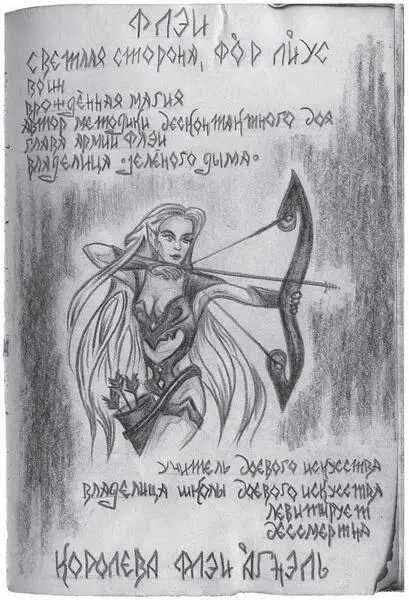 ФЛЭИ
СВЕТЛАЯ СТОРОНА, ФОР ЛИУС
ВОИН
ВРОЖДЁННАЯ МАГИЯ
АВТОР МЕТОДИКИ БЕСКОНТАКТНОГО БОЯ
ГЛАВА АРМИИ ФЛЭИ
ВЛАДЕЛИЦА "ЗЕЛЁНОГО ДЫМА"
УЧИТЕЛЬ БОЕВОГО ИСКУССТВА
ВЛАДЕЛИЦА ШКОЛЫ БОЕВОГО ИСКУССТВА
ЛЕВИТИРУЕТ
БЕССМЕРТНА
КОРОЛЕВА ФЛЭИ АГНЭЛЬ